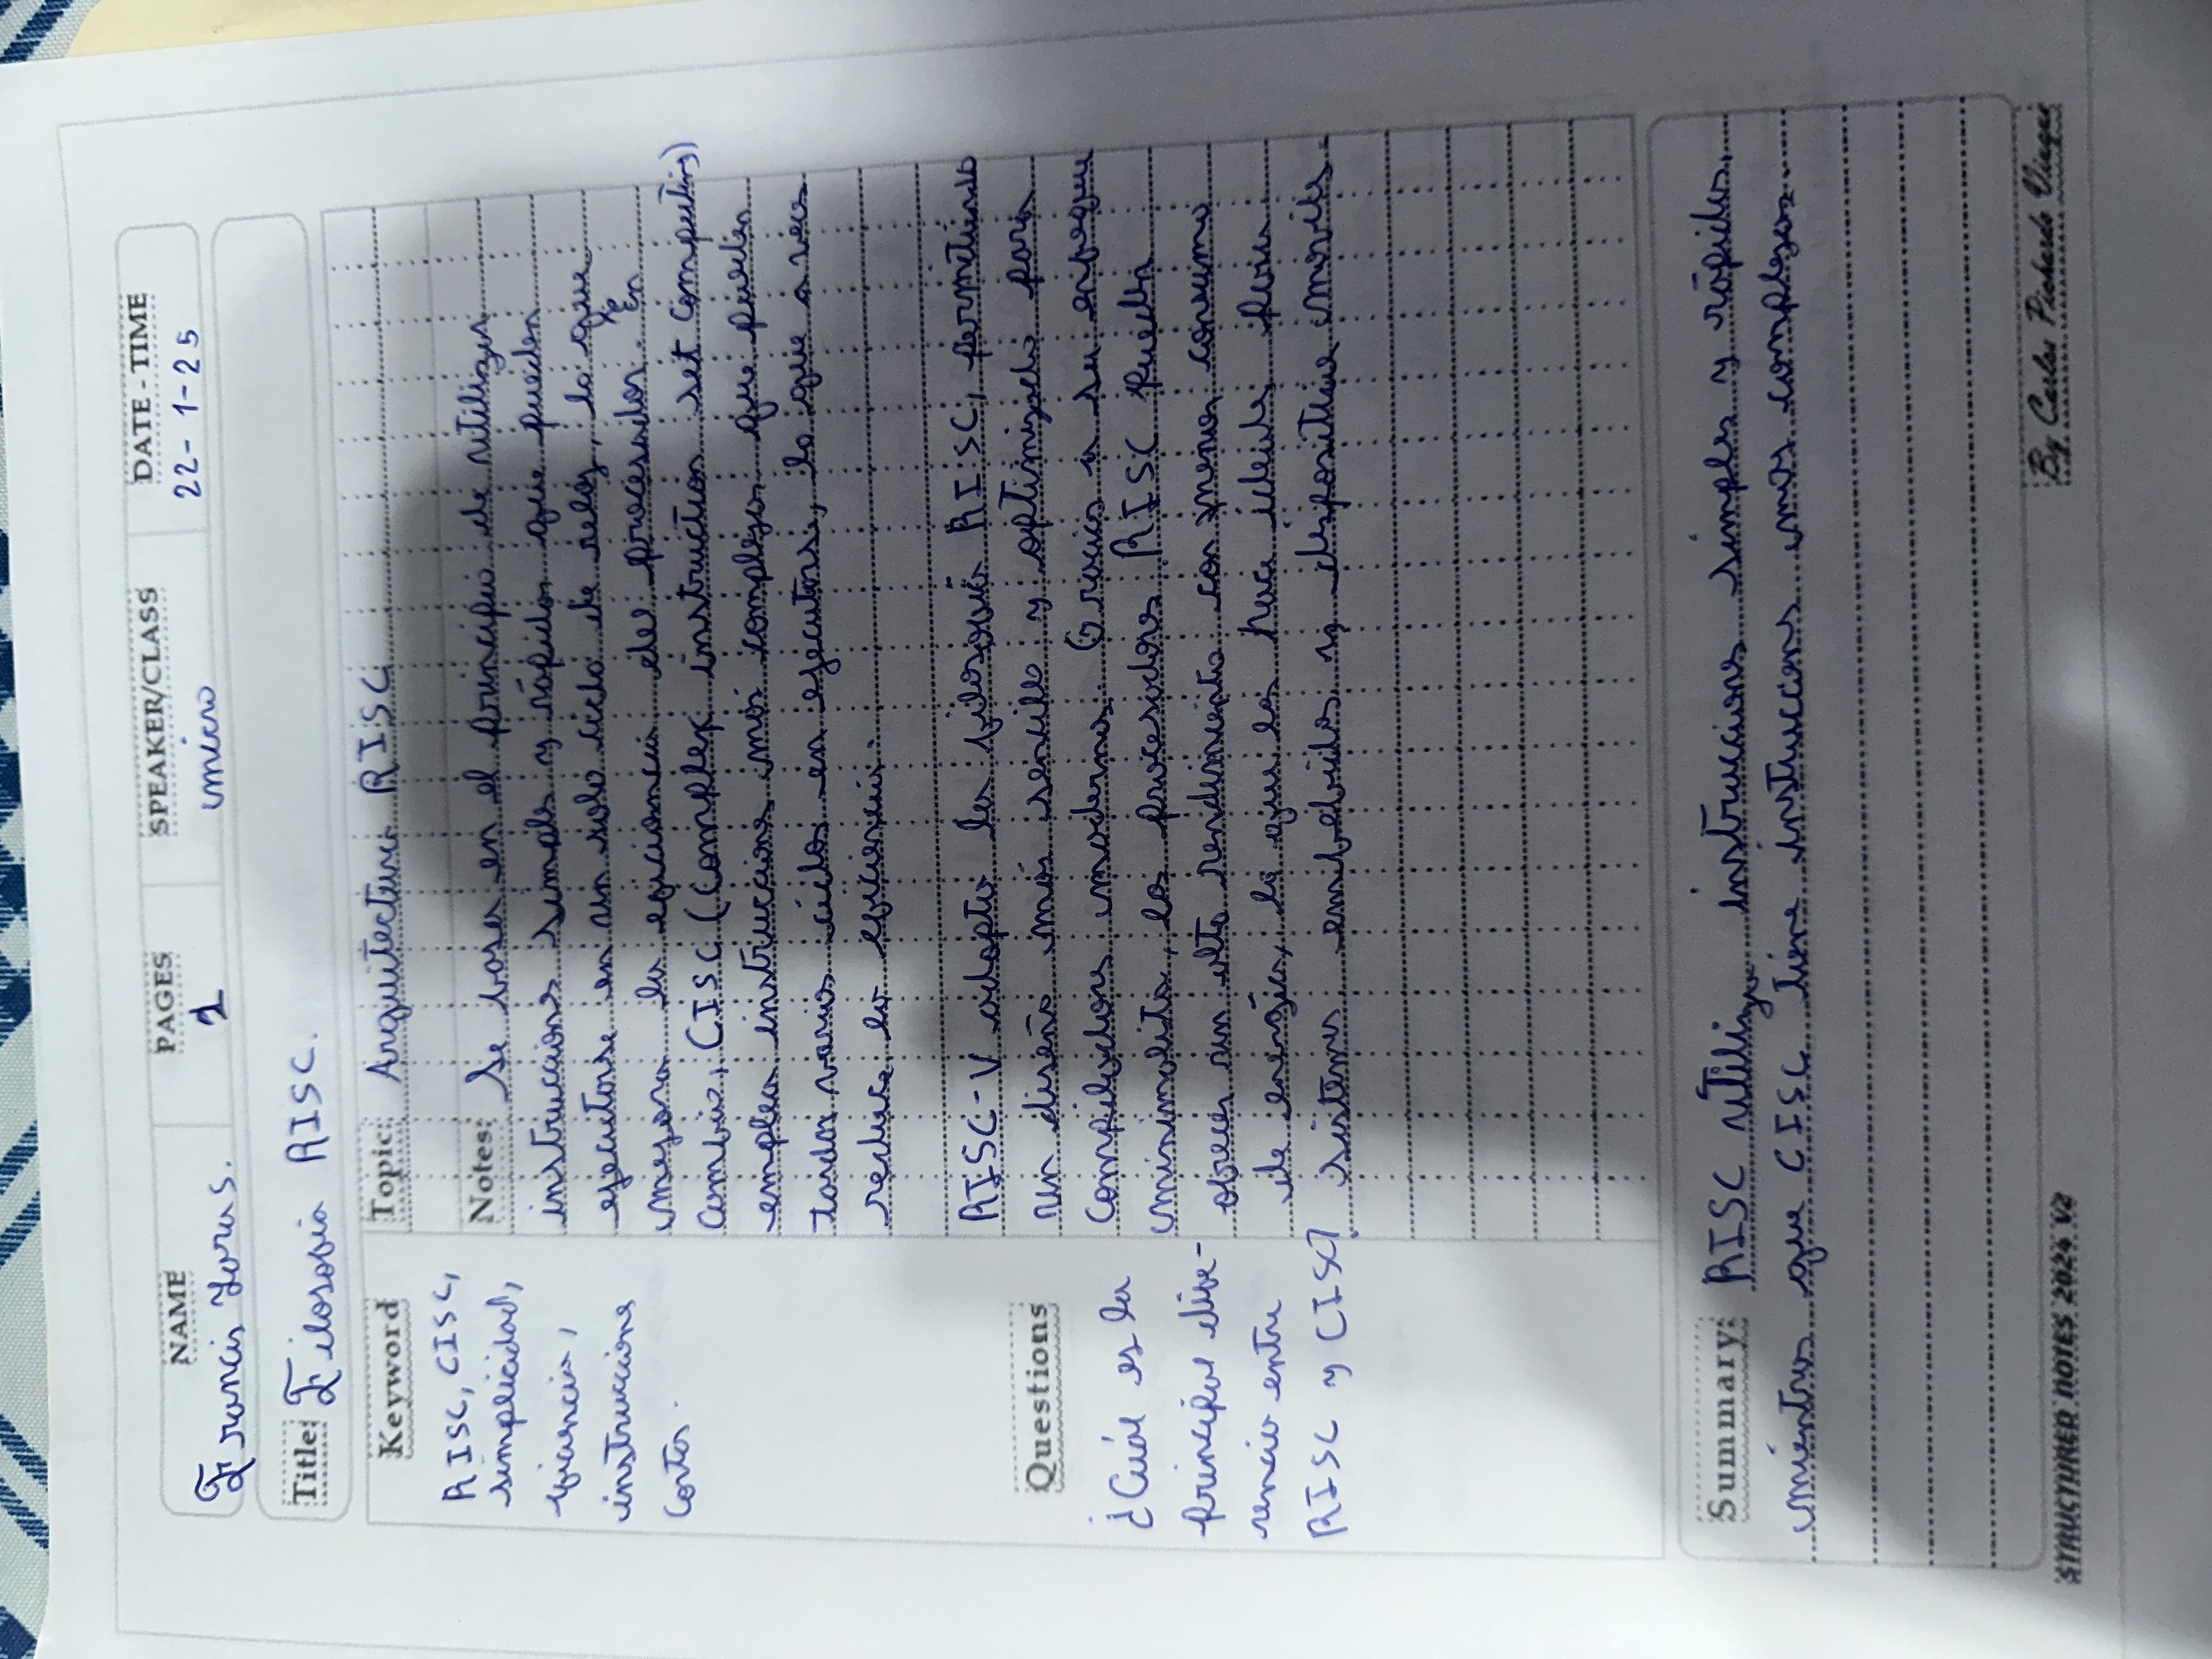 NAME
PAGES
SPEAKER/CLASS
DATE - TIME
Francis S.
1
micro
22-1-25
Title: Filosofía RISC.
Keyword
RISC, CISC,
simplicidad,
eficiencia,
instrucciones
cortas.
Topic: Arquitectura RISC
Notes: Se basa en el principio de utilizar
instrucciones simples y rápidas que pueden
ejecutarse en un solo ciclo de reloj, lo que
mejora la eficiencia del procesador. En
cambio, CISC (Complex instruction set Computing)
emplea instrucciones más complejas que pueden
tardar varios ciclos en ejecutarse, lo que a veces
reduce la eficiencia.
RISC-V adopta la filosofía RISC, permitiendo
un diseño más sencillo y optimizado para
compiladores modernos. Gracias a su enfoque
minimalista, los procesadores RISC pueden
ofrecer un alto rendimiento con menos consumo
de energía, lo que los hace ideales para
sistemas embebidos y dispositivos móviles.
Questions
¿Cuál es la
principal dife-
rencia entre
RISC y CISC?
Summary: RISC utiliza instrucciones simples y rápidas,
mientras que CISC tiene instruccions más complejas.
STRUCTURED NOTES 2024 V2
By Carlos Pichardo Viuque